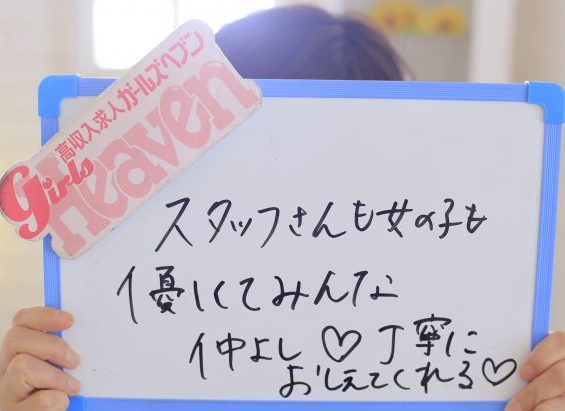 高収入求人ガールズヘブン
Girls
Heaven
スタッフさんも女の子も
優しくてみんな
仲よし♡丁寧に
おしえてくれる♡